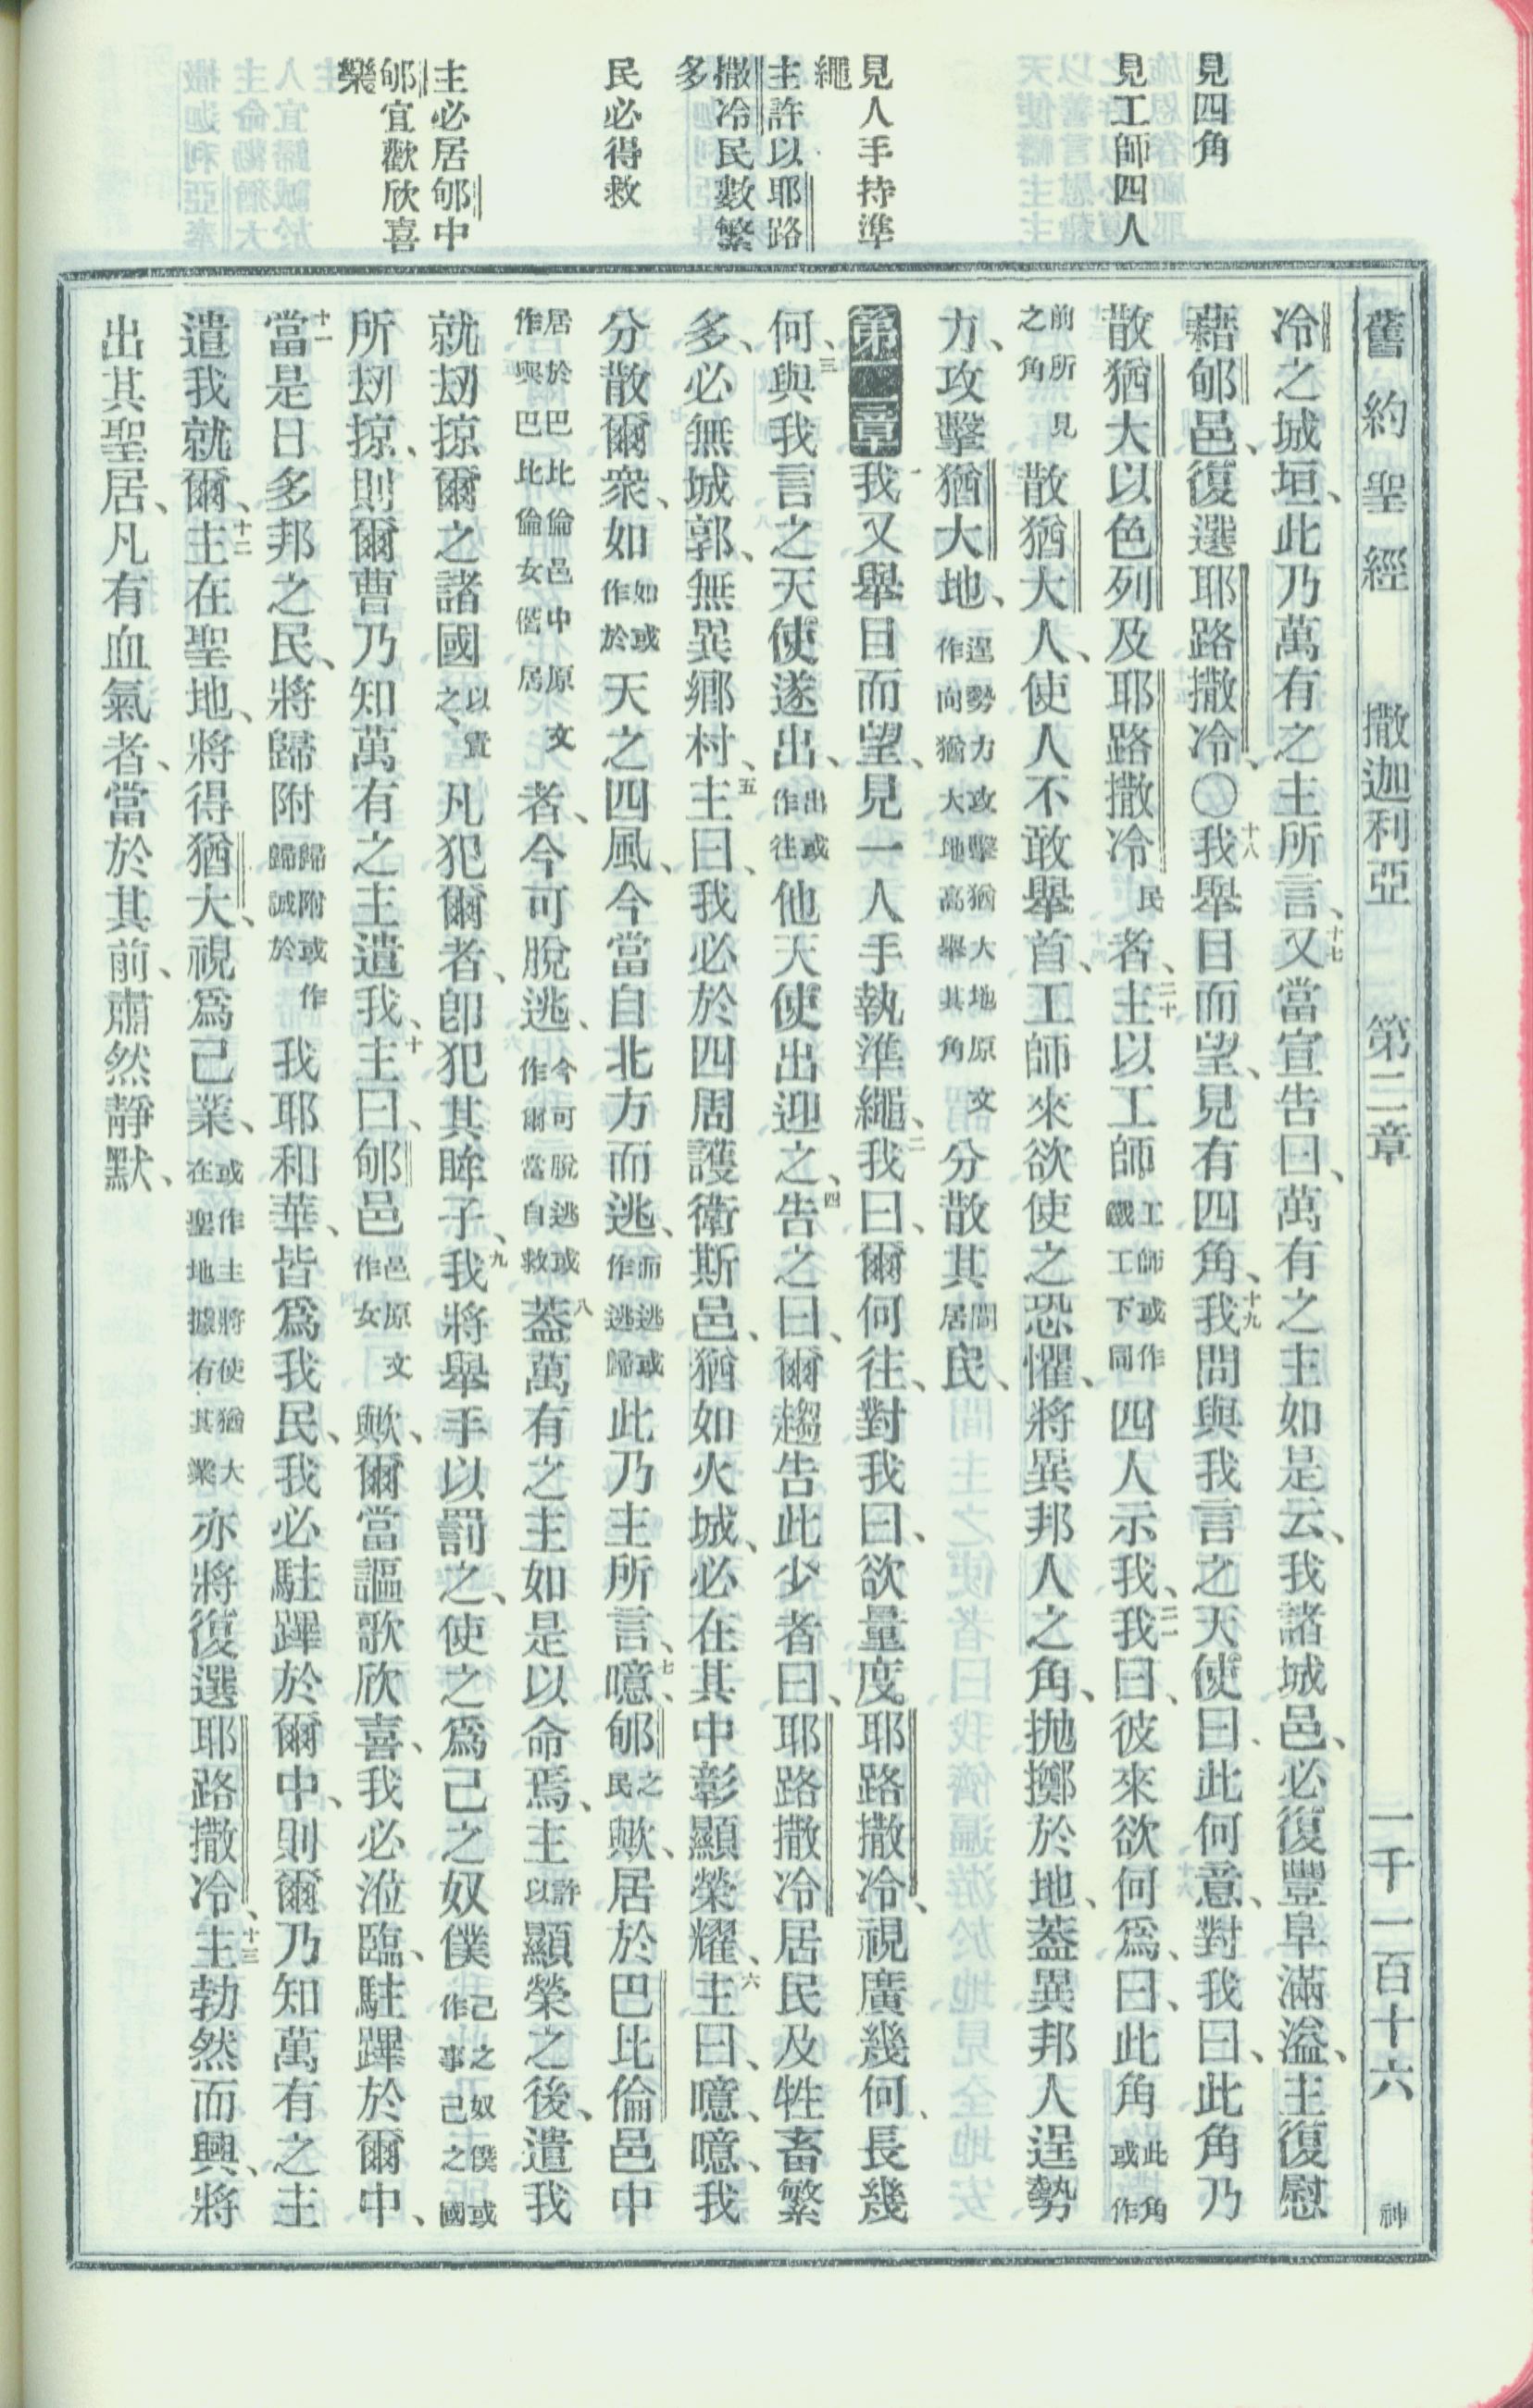 舊約聖經 撒迦利亞 第二章 一千一百十六 神
見四角
見工師四人
見人手持準
繩
主許以耶路
撒冷民數繁
多
民必得救
主必居郇中
郇宜歡欣喜
樂
冷之城垣、此乃萬有之主所言、十七又當宣告曰、萬有之主如是云、我諸城邑、必復豐阜滿溢、主復慰
藉郇邑、復選耶路撒冷、〇十八我舉目而望、見有四角、十九我問與我言之天使曰、此何意、對我曰、此角乃
散猶大以色列及耶路撒冷民者、二十主以工師工師或作鐵工下同四人示我、二一我曰、彼來欲何爲、曰、此角此角或作
前所見之角散猶大人、使人不敢舉首、工師來欲使之恐懼、將異邦人之角、拋擲於地、蓋異邦人逞勢
力、攻擊猶大地、逞勢力攻擊猶大地原文作向猶大地高舉其角分散其間居民、
第二章一我又舉目而望、見一人手執準繩、二我曰、爾何往、對我曰、欲量度耶路撒冷、視廣幾何、長幾
何、三與我言之天使遂出、出或作往他天使出迎之、四告之曰、爾趨告此少者曰、耶路撒冷居民及牲畜繁
多、必無城郭、無異鄉村、五主曰、我必於四周護衛斯邑、猶如火城、必在其中彰顯榮耀、六主曰、噫、噫、我
分散爾衆、如如或作於天之四風、今當自北方而逃、而逃或作逃歸此乃主所言、七噫、郇之民歟、居於巴比倫邑中
居於巴比倫邑中原文作與巴比倫女偕居者、今可脫逃、今可脫逃或作爾當自救八蓋萬有之主如是以命焉、主許以顯榮之後、遣我
就刼掠爾之諸國以責之、凡犯爾者、卽犯其眸子、九我將舉手以罰之、使之爲己之奴僕己之奴僕或作事己之國
所刼掠、則爾曹乃知萬有之主遣我、十主曰、郇邑邑原文作女歟、爾當謳歌欣喜、我必涖臨、駐蹕於爾中、
十一當是日多邦之民、將歸附歸附或作歸誠於我耶和華、皆爲我民、我必駐蹕於爾中、則爾乃知萬有之主
遣我就爾、十二主在聖地、將得猶大、視爲己業、或作主將使猶大在聖地據有其業亦將復選耶路撒冷、十三主勃然而興、將
出其聖居、凡有血氣者、當於其前、肅然靜默、